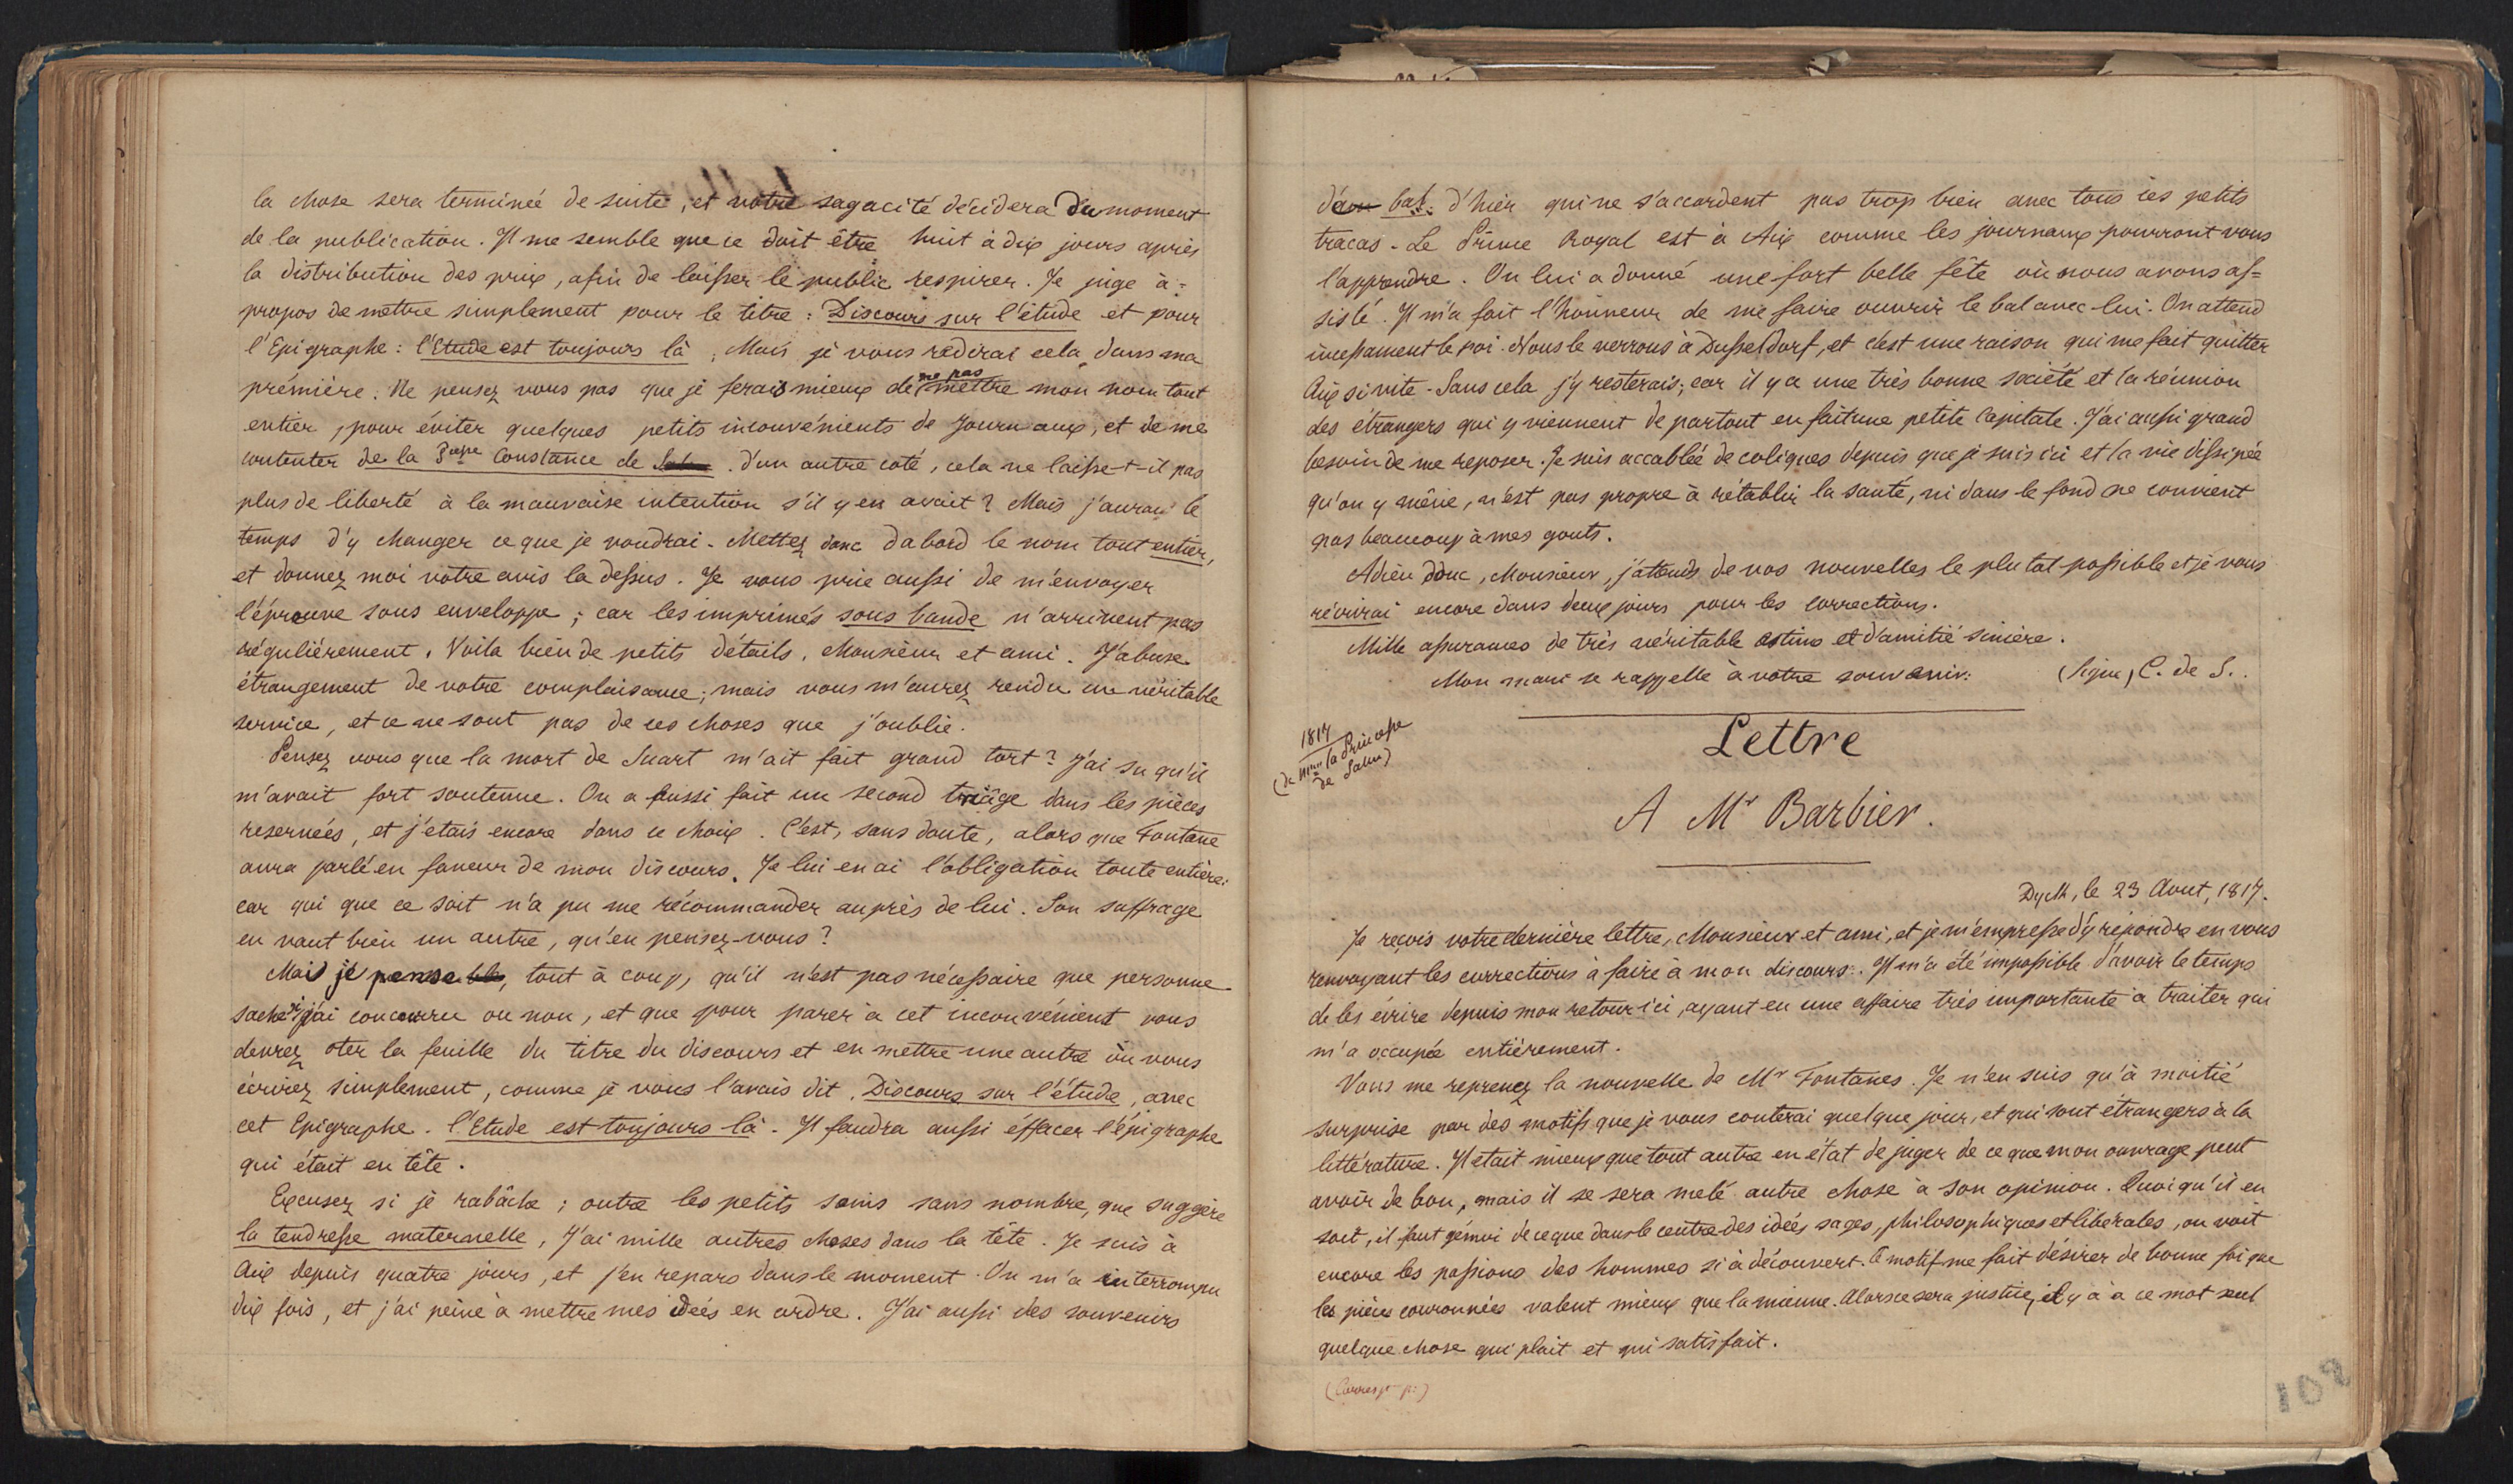 la chose sera terminée de suite, et votre sagacité décidera du moment
de la publication. Il me semble que ce doit être huit à dix jours après
la distribution des prix, afin de laisser le public respirer. Je juge à-
propos de mettre simplement pour le titre : Discours sur l'étude et pour
l'Epigraphe : l'Etude est toujours là. Mais je vous redirai cela dans ma
prémière. Ne pensez vous pas que je ferais mieux de ne pas mettre mon nom tout
entier, pour éviter quelques petits inconvénients de Journaux, et de me
contenter de la Pcesse Constance de . d'un autre coté, cela ne laisse-t-il pas
plus de liberté à la mauvaise intention s'il y en avait ? Mais j'aurai le
temps d'y changer ce que je voudrai. Mettez donc dabord le nom tout entier,
et donnez moi votre avis la dessus. Je vous prie aussi de m'envoyer
l'épreuve sous enveloppe ; car les imprimés sous bande n'arrivent pas
régulièrement. Voila bien de petits détails, Monsieur et ami. J'abuse
étrangement de votre complaisance ; mais vous m'aurez rendu un véritable
service, et ce ne sont pas de ces choses que j'oublie.
Pensez vous que la mort de Suart m'ait fait grand tort ? J'ai su qu'il
m'avait fort soutenue. On a aussi fait un second triâge dans les pièces
reservées, et j'etais encore dans ce choix. C'est, sans doute, alors que Fontane
aura parlé en faveur de mon discours. Je lui en ai l'obligation toute entière :
car qui que ce soit n'a pu me récommander auprès de lui. Son suffrage
en vaut bien un autre, qu'en pensez-vous ?
Mais je pense, tout à coup, qu'il n'est pas nécessaire que personne
sache si j'ai concourru ou non, et que pour parer à cet inconvénient vous
devrez oter la feuille du titre du discours et en mettre une autre où vous
écrirez simplement, comme je vous l'avais dit, Discours sur l'étude, avec
cet Epigraphe. l'Etude est toujours là. Il faudra aussi éffacer l'épigraphe
qui était en tête.
Excusez si je rabâche ; outre les petits soins sans nombre, que suggère
la tendresse maternelle, j'ai mille autres choses dans la tête. Je suis à
Aix depuis quatre jours, et j'en repars dans le moment. On m'a interrompu
dix fois, et j'ai peine à mettre mes idées en ordre. J'ai aussi des souvenirs
d'un bal d'hier qui ne s'accordent pas trop bien avec tous ces petits
tracas. Le Prince Royal est à Aix comme les journaux pourront vous
l'apprendre. On lui a donné une fort belle fête où nous avons as=
sisté. Il m'a fait l'honneur de me faire ouvrir le bal avec lui. On attend
incessament le roi. Nous le verrons à Dusseldorf, et c'est une raison qui me fait quitter
Aix si vite. Sans cela j'y resterais ; car il y a une très bonne société et la réunion
des étrangers qui y viennent de partout en fait une petite Capitale. J'ai aussi grand
besoin de me reposer. Je suis accablée de coliques depuis que je suis ici et la vie dissipée
qu'on y mène, n'est pas propre à rétablir la santé, ni dans le fond ne convient
pas beaucoup à mes gouts.
Adieu donc, Monsieur, j'attends de vos nouvelles le plu tot possible et je vous
récrirai encore dans deux jours pour les corrections.
Mille assurances de très véritable estime et d'amitié sincère.
Mon mari se rappelle à votre souvenir. (Signé) C. de S..
1817
(de Mme la Princesse
de Salm)
Lettre
A Mr Barbier.
Dyck, le 23 Aout, 1817.
Je reçois votre dernière lettre, Monsieur et ami, et je m'empresse d'y répondre en vous
renvoyant les corrections à faire à mon discours. Il m'a été impossible d'avoir le temps
de les écrire depuis mon retour ici, ayant eu une affaire très importante à traiter qui
m'a occupée entièrement.
Vous me reprenez la nouvelle de Mr Fontanes. Je n'en suis qu'à moitié
surprise par des motifs que je vous conterai quelque jour, et qui sont étrangers à la
littérature. Il était mieux que tout autre en état de juger de ce que mon ouvrage peut
avoir de bon, mais il se sera melé autre chose à son opinion. Quoi qu'il en
soit, il faut gémir de ce que dans le centre des idées sages, philosophiques et libérales, on voit
encore les passions des hommes si à découvert. Ce motif me fait désirer de bonne foi que
les pièces couronnées valent mieux que la mienne. Alors ce sera justice, il y a à ce mot seul
quelque chose qui plait et qui satisfait.
(Corresp. p:)
108